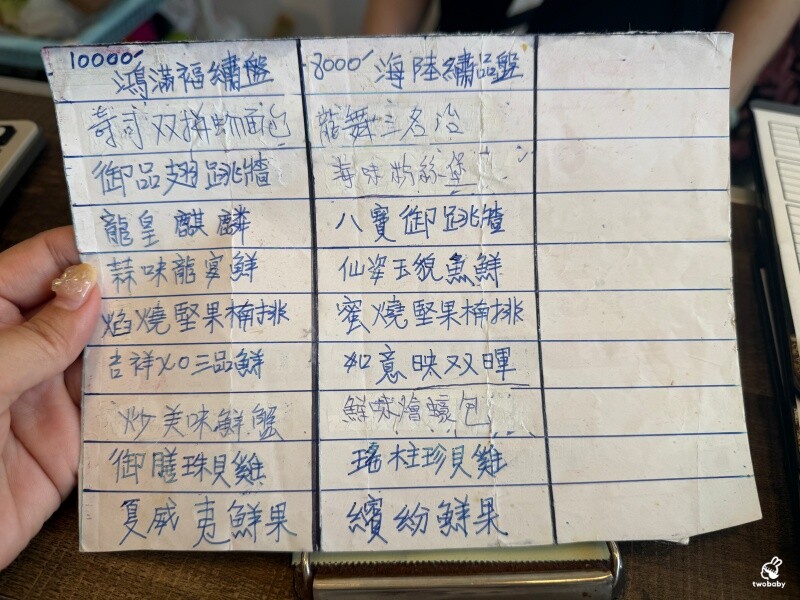 10000
鴻滿福繡盤
壽司双拼蚋面包
御品翅跳牆
龍皇麒麟
蒜味龍宴鮮
焰燒堅果楠排
吉祥XO三品鮮
炒美味鮮蟹
御膳珠貝雞
夏威夷鮮果
8000
海陸繡品盤
龍舞三名治
海味粉絲堡
八寶御跳牆
仙姿玉貌魚鮮
蜜燒堅果楠排
如意映双暉
鮮味燴蠔包
瑤柱珍貝雞
繽紛鮮果
twobaby